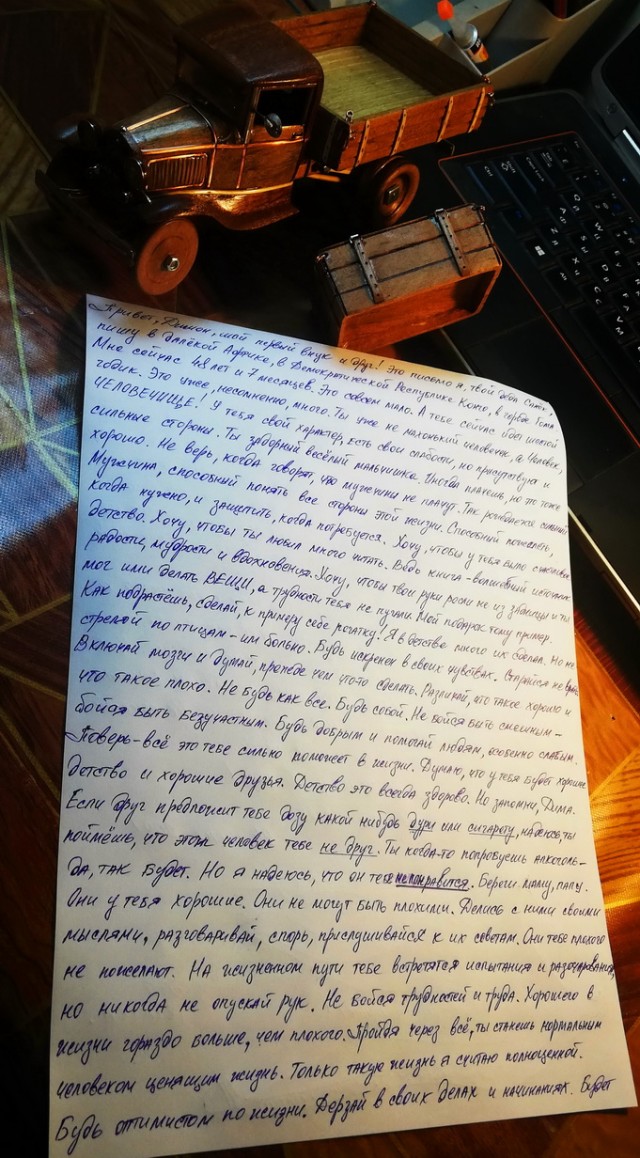 Привет, Димон, мой первый внук и друг! Это письмо я, твой деда Славик,
пишу в далёкой Африке, в Демократической Республике Конго, в городе Гома
Мне сейчас 48 лет и 7 месяцев. Это совсем мало. А тебе сейчас идёт шестой
годик. Это уже, несомненно, много. Ты уже не махонький человечек, а Человек,
ЧЕЛОВЕЧИЩЕ! У тебя свой характер, есть свои слабости, но присутствуют и
сильные стороны. Ты задорный весёлый мальчишка. Иногда плачешь, но это тоже
хорошо. Не верь, когда говорят, что мужчины не плачут. Так рождается сильный
Мужчина, способный понять все стороны этой жизни. Способный пожалеть,
когда нужно, и защитить, когда потребуется. Хочу, чтобы у тебя было счастливое
детство. Хочу, чтобы ты любил много читать. Ведь книга - волшебный источник
радости, мудрости и вдохновения. Хочу, чтобы твои руки росли не из задницы и ты
мог ими делать ВЕЩИ, а трудности тебя не пугали. Мой подарок тому пример.
Как подрастёшь, сделай, к примеру себе рогатку! Я в детстве много их сделал. Но не
стреляй по птицам - им больно. Будь искренен в своих чувствах. Старайся не врать.
Включай мозги и думай, прежде чем что-то сделать. Различай, что такое хорошо и
что такое плохо. Не будь как все. Будь собой. Не бойся быть смешным -
бойся быть безучастным. Будь добрым и помогай людям, особенно слабым.
Поверь - всё это тебе сильно поможет в жизни. Думаю, что у тебя будет хорошее
детство и хорошие друзья. Детство это всегда здорово. Но запомни, Дима.
Если друг предложит тебе дозу какой нибудь дури или сигарету, надеюсь, ты
поймёшь, что этот человек тебе не друг. Ты когда-то попробуешь алкоголь -
да, так будет. Но я надеюсь, что он тебе непонравится. Береги маму, папу.
Они у тебя хорошие. Они не могут быть плохими. Делись с ними своими
мыслями, разговаривай, спорь, прислушивайся к их советам. Они тебе плохого
не пожелают. На жизненном пути тебе встретятся испытания и разочарования,
но никогда не опускай рук. Не бойся трудностей и труда. Хорошего в
жизни гораздо больше, чем плохого. Пройдя через всё, ты станешь нормальным
человеком ценящим жизнь. Только такую жизнь я считаю полноценной.
Будь оптимистом по жизни. Дерзай в своих делах и начинаниях. Будет